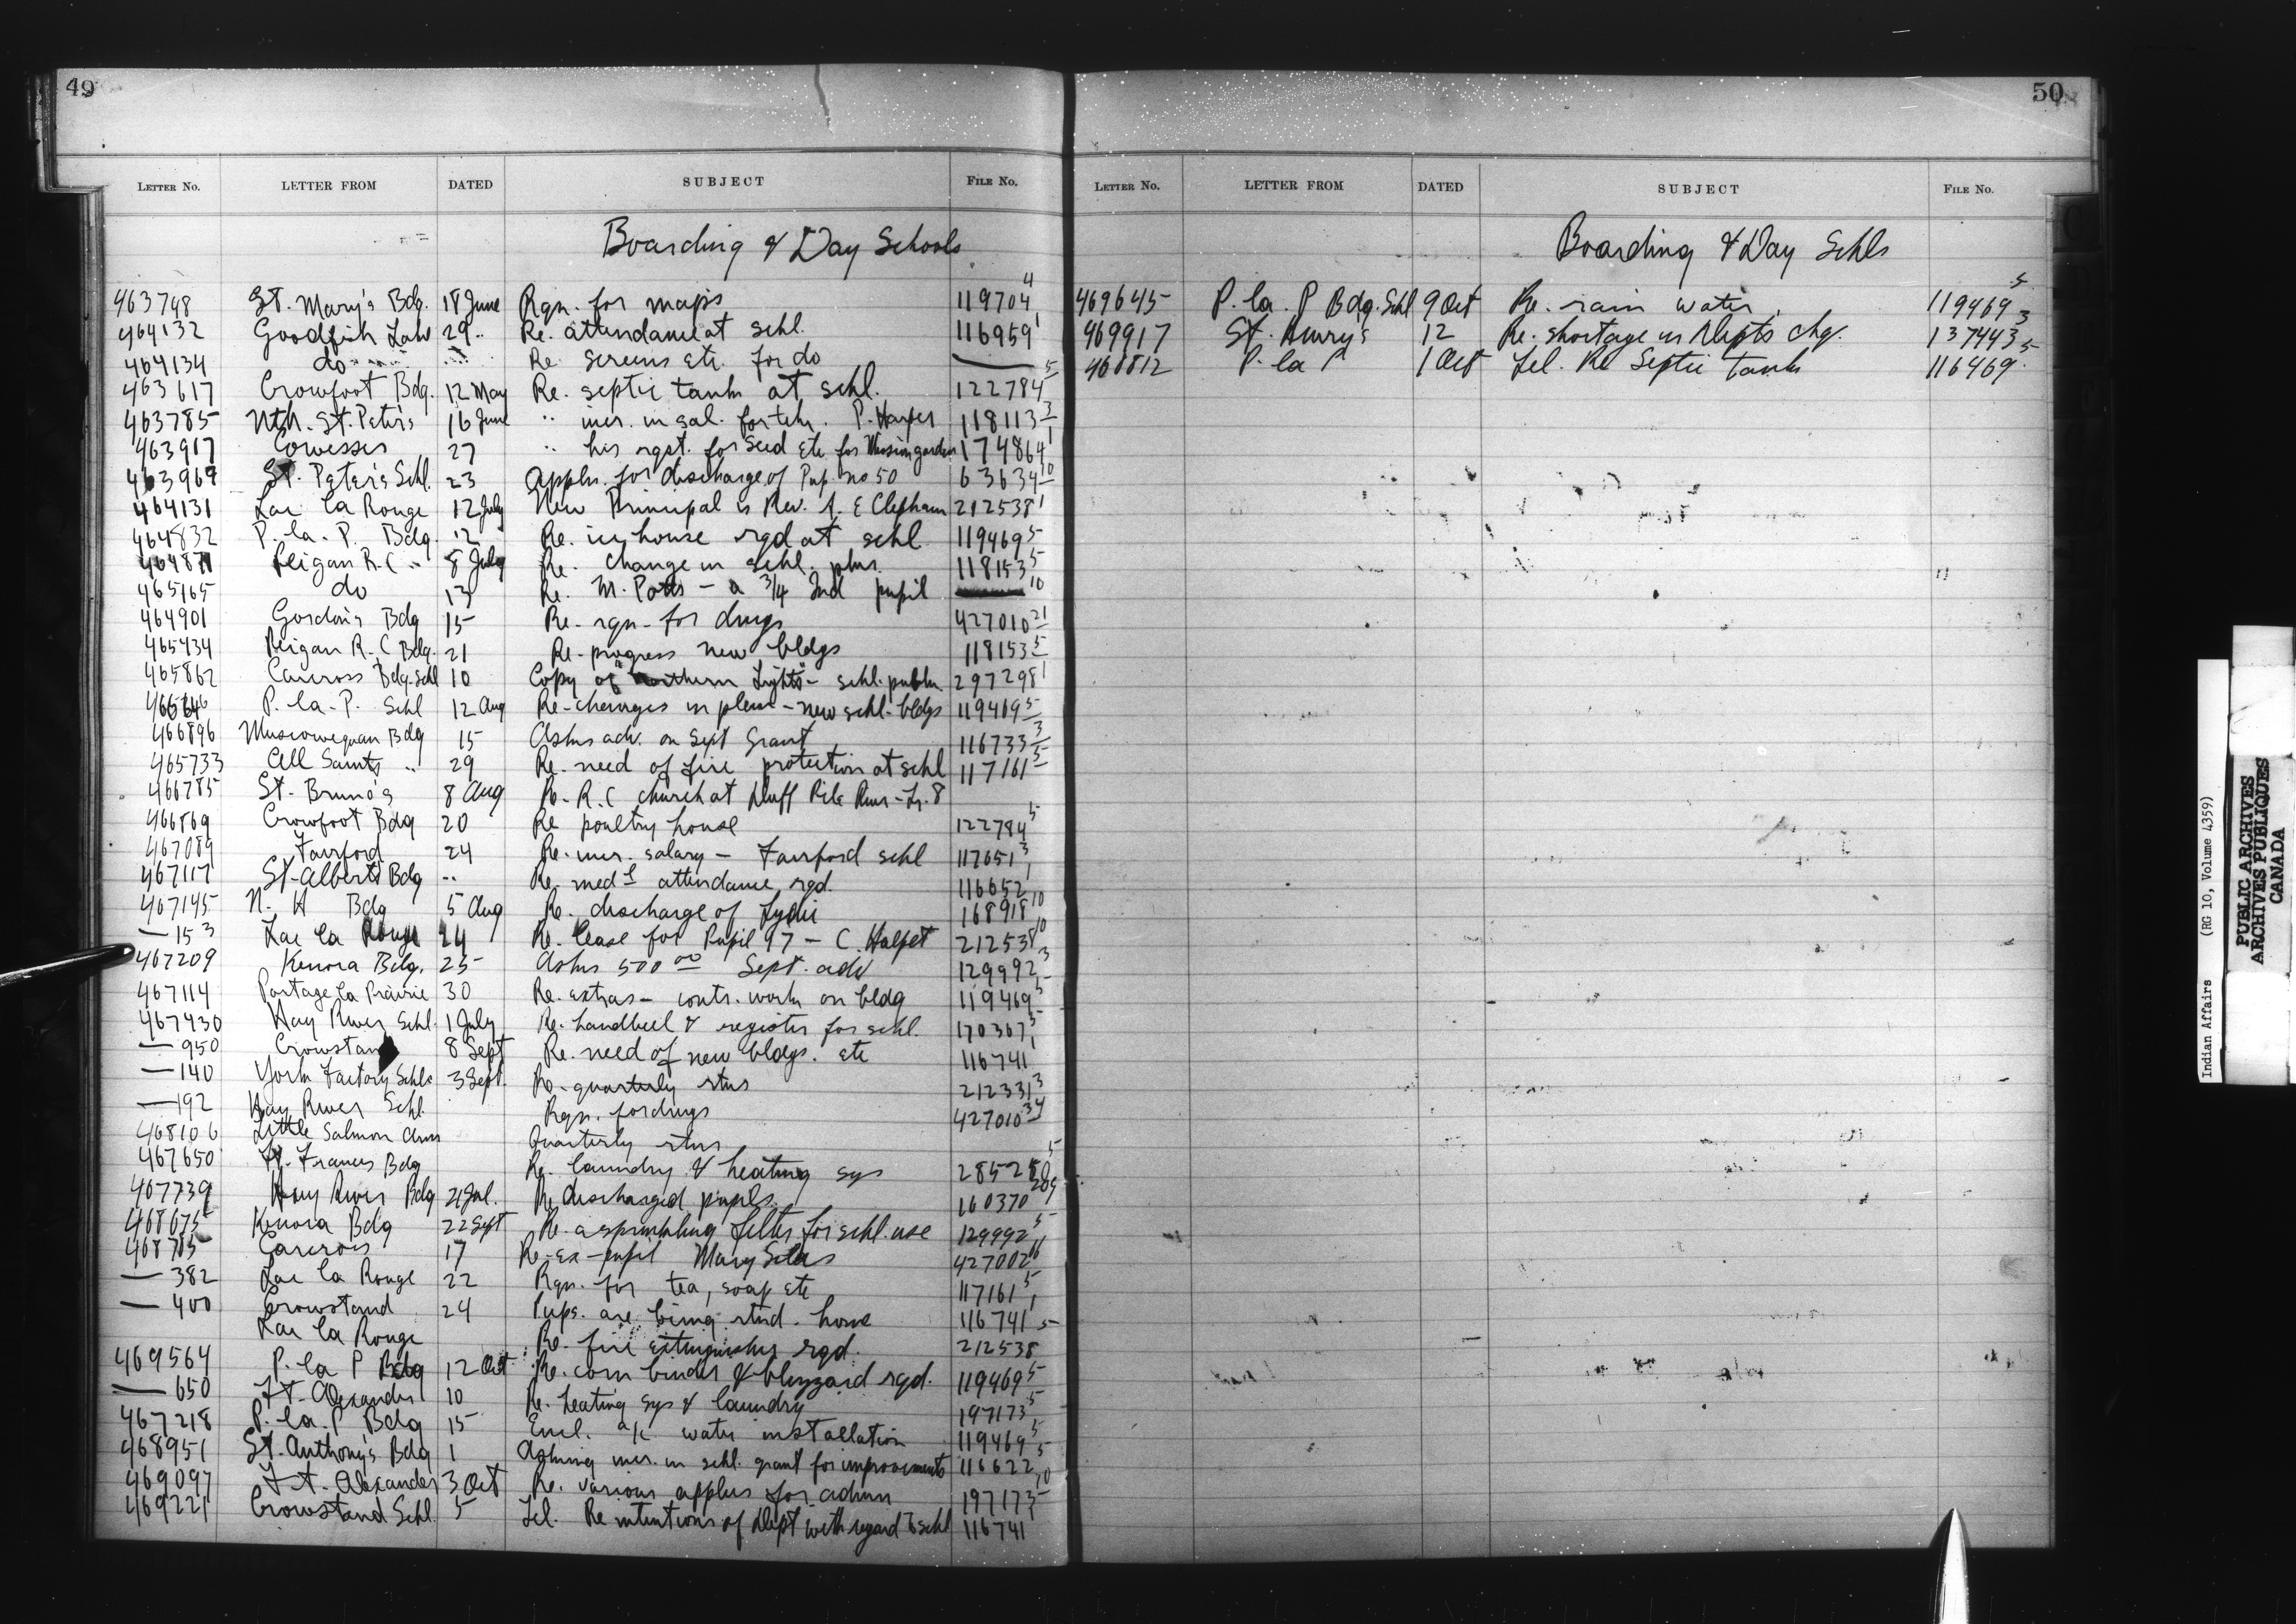 49
LETTER NO. LETTER FROM DATED SUBJECT FILE NO.
Boarding & Day Schools
463748 St. Mary's Bdg. 18 June Rqn. for maps 119704 4
464132 Goodfish Lake 29 .. Re. attendance at schl. 116959 1
464134 do Re screens etc. for do —
463617 Crowfoot Bdg. 12 May Re. septic tank at schl. 122784 5
463785 Nth. St. Peter's 16 June " incr. in sal. for tchr. P. Harper 118113 3
463917 Cowesses 27 " his rqst. for seed etc for Mission garden 174864 1
463969 St. Peter's Schl. 23 Appln. for discharge of Pup no 50 63634 10
464131 Lac la Ronge 12 July New Principal is Rev. A. E Clepham 212538 1
464832 P. la. P. Bdg. 12 Re. ice house rqd at schl 119469 5
Peigan R.C .. 8 July Re. change in schl. plns. 118153 5
465165 do 13 Re. M. Potts - a 3/4 Ind pupil 10
464901 Gordon's Bdg 15 Re. rqn. for drugs 427010 21
465434 Peigan R.C Bdg. 21 Re. progress new bldgs 118153 5
465862 Carcross Bdg. Schl 10 Copy of "Northern Lights" - schl. publn 297298 1
P. la. P. Schl 12 Aug Re. changes in plans - new schl. bldgs 119469 5
466896 Muscowequan Bdg 15 Asks adv. on Sept Grant 116733 3
465733 All Saints .. 29 Re. need of fire protection at schl 117161 5
466785 St. Bruno's 8 Aug Re. R.C church at Driff Pile River - Tr. 8
466869 Crowfoot Bdg 20 Re poultry house 122784 5
467089 Fairford 24 Re. incr. salary - Fairford schl 117651 3
467117 St. Albert's Bdg .. Re. medl attendance rqd. 116652 1
467145 N. H Bdg 5 Aug Re. discharge of Lydii 168918 10
— 153 Lac la Ronge 24 Re. lease for Pupil 97 - C. Halpet 212538 10
467209 Kenora Bdg. 25 Asks 500 00 Sept. adv 129992 3
467114 Portage la Prairie 30 Re. extras - contr. work on bldg 119469 5
467430 Hay River Schl. 1 July Re. handbell & register for schl. 170367 5
— 950 Crowstand 8 Sept Re. need of new bldgs. etc 116741 1
— 140 York Factory Schls 3 Sept. Re. quarterly rtns 212331 3
— 192 Hay River Schl. Rqn. for drugs 427010 34
468106 Little Salmon Quarterly rtns
467650 Ft. Frances Bdg Re. laundry & heating sys 5
467739 Hay River Bdg 21 Jul. Re discharged pupils 160370
468675 Kenora Bdg 22 Sept Re. a sprinkling filter for schl. use 129992 5
468705 Carcross 17 Re. ex-pupil Mary 427002 16
— 382 Lac la Ronge 22 Rqn. for tea, soap etc 117161 5
— 400 Crowstand 24 Pups. are being rtnd. home 116741 1
Lac la Ronge Re. fire extinguishers rqd. 212538 5
469564 P. la P Bdg 12 Oct Re. corn binder & blizzard rqd. 119469 5
— 650 Ft. Alexander 10 Re. heating sys & laundry 197173 5
467218 P. la. P Bdg 15 Encl. a/c water installation 119469 5
468951 St. Anthony's Bdg 1 Asking incr. in schl. grant for improvements 116622 5
469097 Ft. Alexander 3 Oct Re. various applns for admn 197173 10
469221 Crowstand Schl. 5 Tel. Re intentions of Dept with regard to schl 116741 1
50
LETTER NO. LETTER FROM DATED SUBJECT FILE NO.
Boarding & Day Schls
469645 P. la. P Bdg. Schl 9 Oct Re. rain water 119469 5
469917 St. Henry's 12 Re. shortage in Depts chq. 137443 3
468812 P. la P 1 Oct Tel. Re Septic tank 116469 5
Indian Affairs (RG 10, Volume 4359)
PUBLIC ARCHIVES
ARCHIVES PUBLIQUES
CANADA